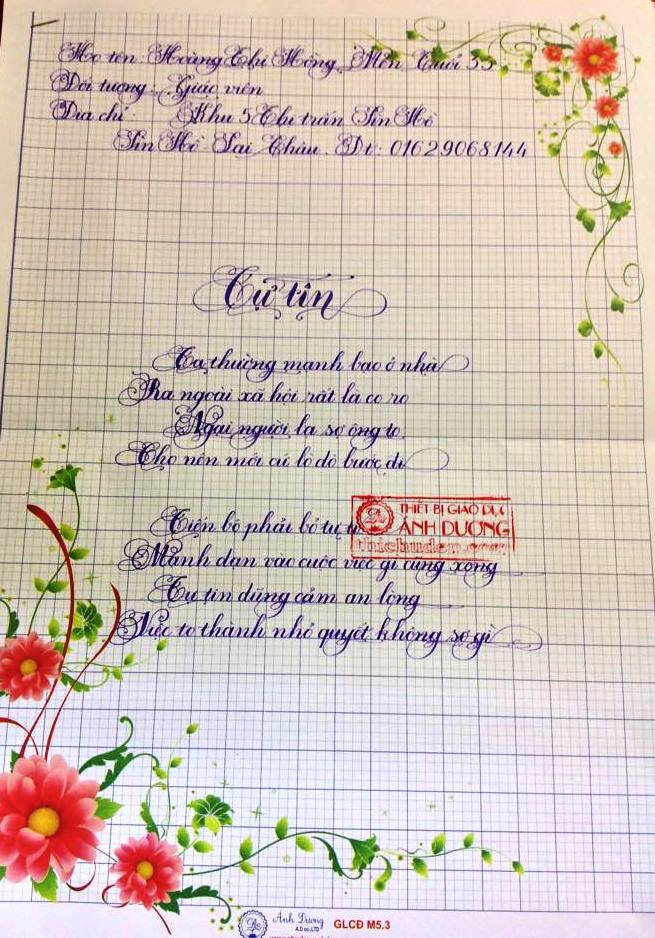 Họ tên: Hoàng Thị Hồng Mến Tuổi 35
Đối tượng: Giáo viên
Địa chỉ: Khu 5 Thị trấn Sìn Hồ
Sìn Hồ Lai Châu. Đt: 01629068144
Tự tin
Ta thường mạnh bạo ở nhà
Ra ngoài xã hội rất là co ro
Ngại người lạ sợ ông to
Cho nên mới cứ lò dò bước đi
Tiến bộ phải bỏ tự ti
THIẾT BỊ GIÁO DỤC
ÁNH DƯƠNG
thichuden.com
Mạnh dạn vào cuộc việc gì cũng xong
Tự tin dũng cảm an lòng
Việc to thành nhỏ quyết không sợ gì
Ánh Dương
A.D co.,LTD
GLCĐ M5.3